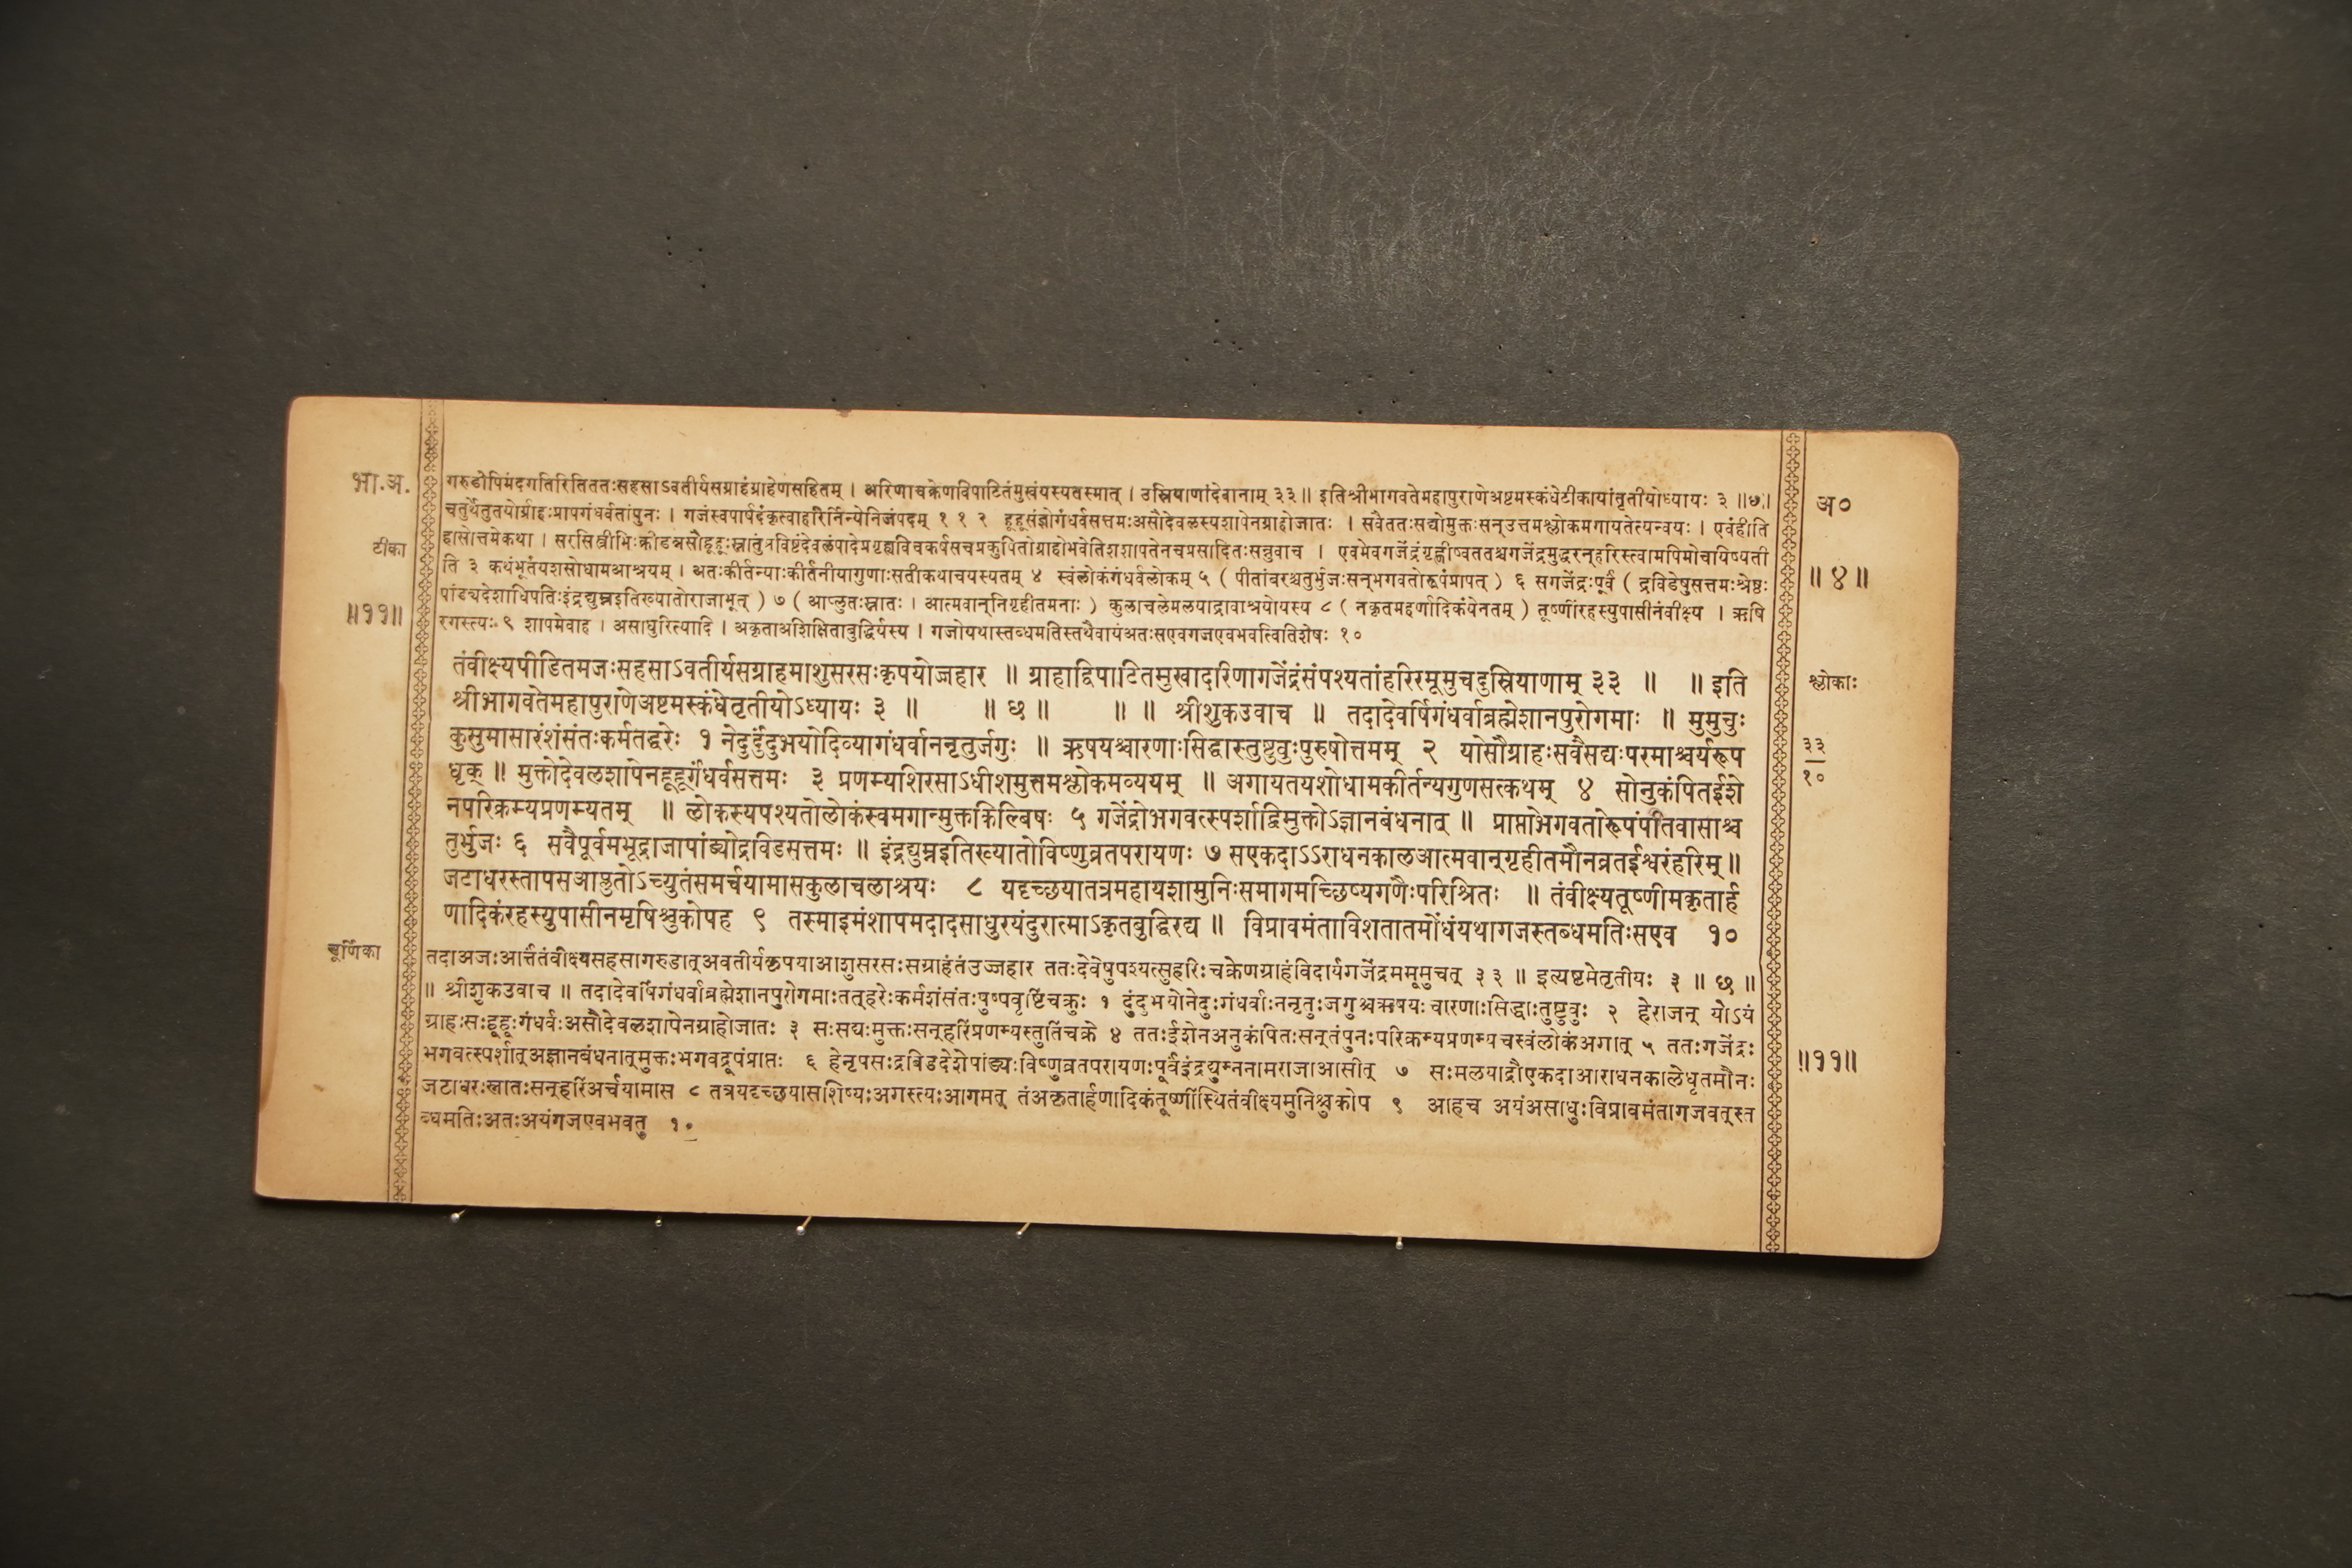 भा.अ.
अ०
गरुडोपिमंदगतिरितिततःसहसाऽवतीर्यसग्राहंग्राहेणसहितम् । अरिणाचक्रेणविपाटितंमुखंयस्यतस्मात् । उस्रियाणांदेवानाम् ३३॥ इतिश्रीभागवतेमहापुराणेअष्टमस्कंधेटीकायांतृतीयोध्यायः ३ ॥छ॥
चतुर्थेतुतयोर्ग्राहःप्रापगंधर्वतांपुनः । गजंस्वपार्षदंकृत्वाहरिर्निन्येनिजंपदम् १ १ २ हूहूसंज्ञोगंधर्वसत्तमःअसौदेवलस्यशापेनग्राहोजातः । सवैततःसद्योमुक्तःसन्उत्तमश्लोकमगायतेत्यन्वयः । एवंहीति
टीका
हासोत्तमेकथा । सरसिस्त्रीभिःक्रीडन्नसौहूहूःस्नातुंप्रविष्टंदेवलंपादेप्रगृह्यविचकर्षसचप्रकुपितोग्राहोभवेतिशशापतेनचप्रसादितःसन्नुवाच । एवमेवगजेंद्रंगृह्णीष्वततश्चगजेंद्रमुद्धरन्हरिस्त्वामपिमोचयिष्यती
ति ३ कथंभूतंयशसोधामआश्रयम् । अतःकीर्तन्याःकीर्तनीयागुणाःसतीकथाचयस्यतम् ४ स्वंलोकंगंधर्वलोकम् ५ ( पीतांबरश्चतुर्भुजःसन्भगवतोरूपंप्रापत् ) ६ सगजेंद्रःपूर्वं ( द्रविडेषुसत्तमःश्रेष्ठः
॥४॥
पांड्यदेशाधिपतिःइंद्रद्युम्नइतिख्यातोराजाभूत् ) ७ ( आप्लुतःस्नातः । आत्मवान्निगृहीतमनाः ) कुलाचलेमलयाद्रावाश्रयोयस्य ८ ( नकृतमर्हणादिकंयेनतम् ) तूष्णींरहस्युपासीनंवीक्ष्य । ऋषि
॥११॥
रगस्त्यः ९ शापमेवाह । असाधुरित्यादि । अकृताअशिक्षिताबुद्धिर्यस्य । गजोयथास्तब्धमतिस्तथैवायंअतःसएवगजएवभवत्वितिशेषः १०
तंवीक्ष्यपीडितमजःसहसाऽवतीर्यसग्राहमाशुसरसःकृपयोज्जहार ॥ ग्राहाद्विपाटितमुखादरिणागजेंद्रंसंपश्यतांहरिरमूमुचदुस्रियाणाम् ३३ ॥ ॥ इति
श्लोकाः
श्रीभागवतेमहापुराणेअष्टमस्कंधेतृतीयोऽध्यायः ३ ॥ ॥ छ ॥ ॥ ॥ श्रीशुकउवाच ॥ तदादेवर्षिगंधर्वाब्रह्मेशानपुरोगमाः ॥ मुमुचुः
कुसुमासारंशंसंतःकर्मतद्धरेः १ नेदुर्दुंदुभयोदिव्यागंधर्वाननृतुर्जगुः ॥ ऋषयश्चारणाःसिद्धास्तुष्टुवुःपुरुषोत्तमम् २ योसौग्राहःसवैसद्यःपरमाश्चर्यरूप
३३
१०
धृक् ॥ मुक्तोदेवलशापेनहूहूर्गंधर्वसत्तमः ३ प्रणम्यशिरसाऽधीशमुत्तमश्लोकमव्ययम् ॥ अगायतयशोधामकीर्तन्यगुणसत्कथम् ४ सोनुकंपितईशे
नपरिक्रम्यप्रणम्यतम् ॥ लोकस्यपश्यतोलोकंस्वमगान्मुक्तकिल्बिषः ५ गजेंद्रोभगवत्स्पर्शाद्विमुक्तोऽज्ञानबंधनात् ॥ प्राप्तोभगवतोरूपंपीतवासाश्च
तुर्भुजः ६ सवैपूर्वमभूद्राजापांड्योद्रविडसत्तमः ॥ इंद्रद्युम्नइतिख्यातोविष्णुव्रतपरायणः ७ सएकदाऽऽराधनकालआत्मवान्गृहीतमौनव्रतईश्वरंहरिम्॥
जटाधरस्तापसआप्लुतोऽच्युतंसमर्चयामासकुलाचलाश्रयः ८ यदृच्छयातत्रमहायशामुनिःसमागमच्छिष्यगणैःपरिश्रितः ॥ तंवीक्ष्यतूष्णीमकृतार्ह
णादिकंरहस्युपासीनमृषिश्चुकोपह ९ तस्माइमंशापमदादसाधुरयंदुरात्माऽकृतबुद्धिरद्य ॥ विप्रावमंताविशतातमोंधंयथागजस्तब्धमतिःसएव १०
चूर्णिका
तदाअजःआर्त्तंतंवीक्ष्यसहसागरुडात्अवतीर्यकृपयाआशुसरसःसग्राहंतंउज्जहार ततःदेवेषुपश्यत्सुहरिःचक्रेणग्राहंविदार्यगजेंद्रममूमुचत् ३३ ॥ इत्यष्टमेतृतीयः ३ ॥ छ ॥
॥ श्रीशुकउवाच ॥ तदादेवर्षिगंधर्वाब्रह्मेशानपुरोगमाःतत्हरेःकर्मशंसंतःपुष्पवृष्टिंचक्रुः १ दुंदुभयोनेदुःगंधर्वाःननृतुःजगुश्चऋषयःचारणाःसिद्धाःतुष्टुवुः २ हेराजन् योऽयं
ग्राहःसःहूहूःगंधर्वःअसौदेवलशापेनग्राहोजातः ३ सःसद्यःमुक्तःसन्हरिंप्रणम्यस्तुतिंचक्रे ४ ततःईशेनअनुकंपितःसन्तंपुनःपरिक्रम्यप्रणम्यचस्वंलोकंअगात् ५ ततःगजेंद्रः
॥११॥
भगवत्स्पर्शात्अज्ञानबंधनात्मुक्तःभगवद्रूपंप्राप्तः ६ हेनृपसःद्रविडदेशेपांड्यःविष्णुव्रतपरायणःपूर्वंइंद्रद्युम्ननामराजाआसीत् ७ सःमलयाद्रौएकदाआराधनकालेधृतमौनः
जटाधरःस्नातःसन्हरिंअर्चयामास ८ तत्रयदृच्छयासशिष्यःअगस्त्यःआगमत् तंअकृतार्हणादिकंतूष्णींस्थितंवीक्ष्यमुनिश्चुकोप ९ आहच अयंअसाधुःविप्रावमंतागजवत्स्त
ब्धमतिःअतःअयंगजएवभवतु १०